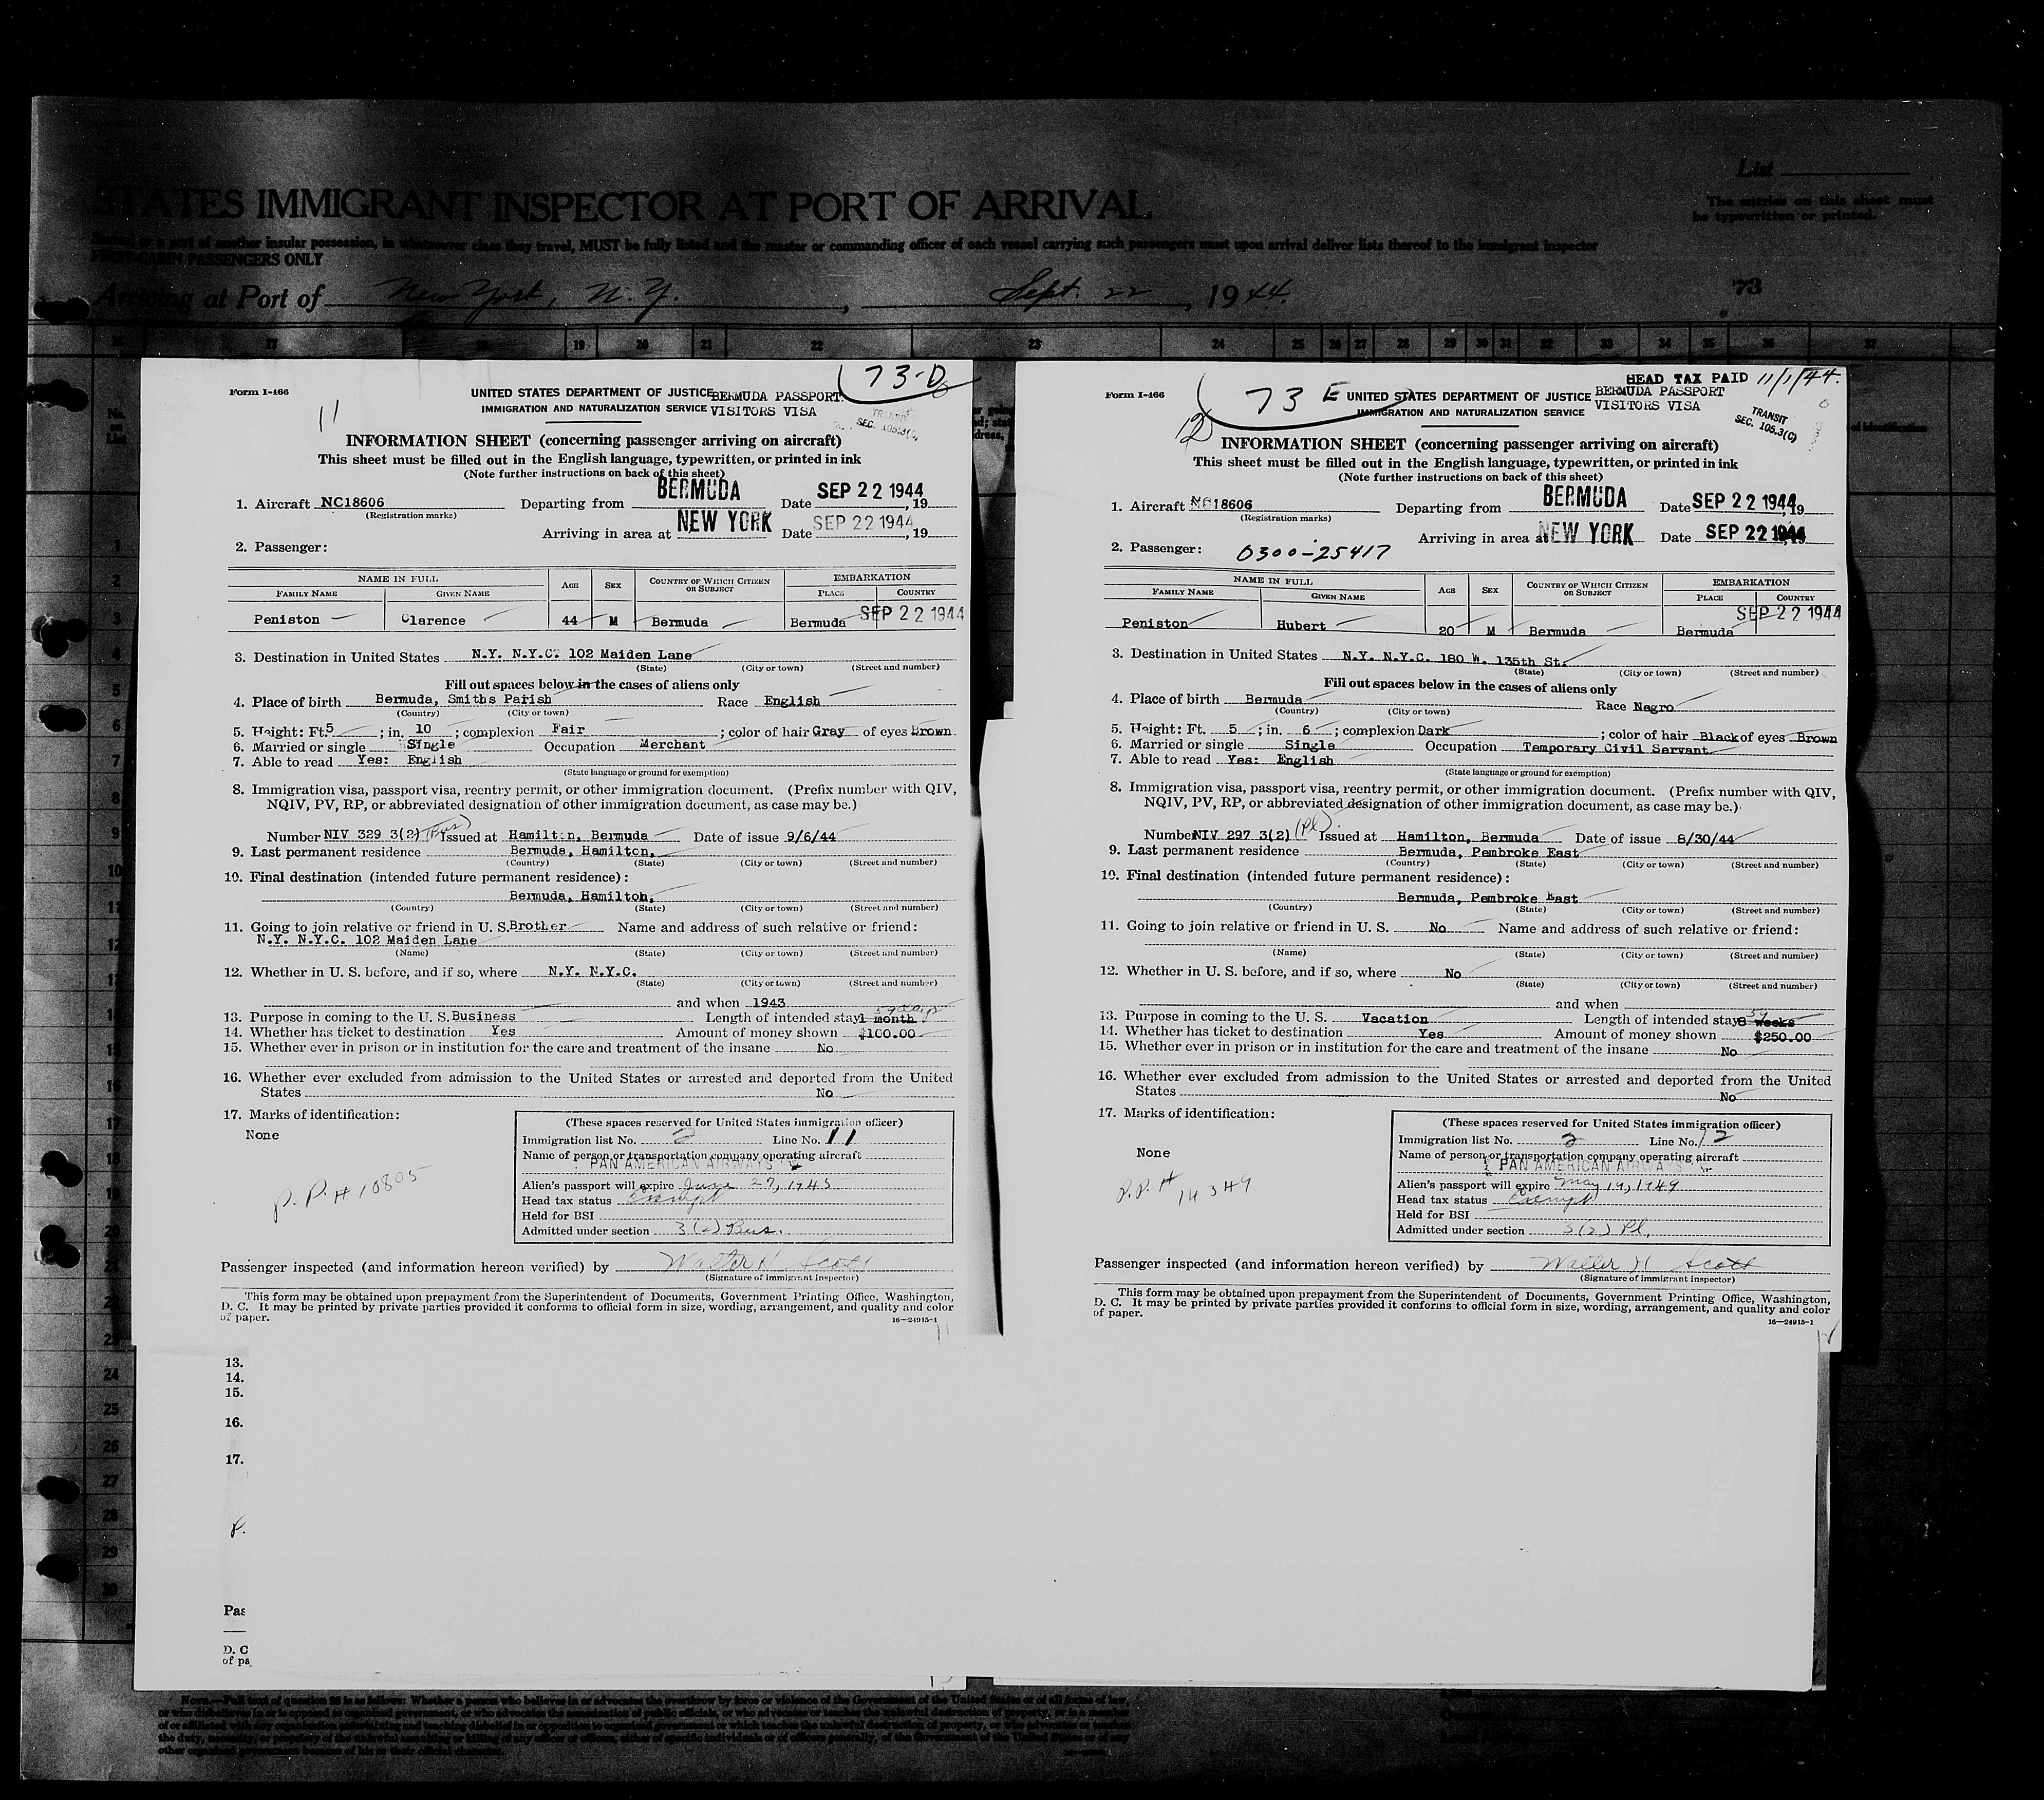 List
STATES IMMIGRANT INSPECTOR AT PORT OF ARRIVAL
The entries on this sheet must
be typewritten or printed.
a port of another insular possession, in whatsoever class they travel, MUST be fully listed and the master or commanding officer of each vessel carrying such passengers must upon arrival deliver lists thereof to the immigrant inspector
FIRST-CABIN PASSENGERS ONLY
Arriving at Port of New York, N.Y., Sept. 22, 1944.
73
17 18 19 20 21 22 23 24 25 26 27 28 29 30 31 32 33 34 35 36 37
73-D
Form I-466
11
UNITED STATES DEPARTMENT OF JUSTICE BERMUDA PASSPORT
IMMIGRATION AND NATURALIZATION SERVICE VISITORS VISA
TRANSIT
SEC. 105.3(C)
INFORMATION SHEET (concerning passenger arriving on aircraft)
This sheet must be filled out in the English language, typewritten, or printed in ink
(Note further instructions on back of this sheet)
1. Aircraft NC18606 Departing from BERMUDA Date SEP 22 1944, 19
(Registration marks)
Arriving in area at NEW YORK Date SEP 22 1944, 19
2. Passenger:
NAME IN FULL AGE SEX COUNTRY OF WHICH CITIZEN OR SUBJECT EMBARKATION
FAMILY NAME GIVEN NAME PLACE COUNTRY
Peniston Clarence 44 M Bermuda Bermuda SEP 22 1944
3. Destination in United States N.Y. N.Y.C. 102 Maiden Lane
(State) (City or town) (Street and number)
Fill out spaces below in the cases of aliens only
4. Place of birth Bermuda, Smiths Parish Race English
(Country) (City or town)
5. Height: Ft. 5; in. 10; complexion Fair; color of hair Gray of eyes Brown
6. Married or single Single Occupation Merchant
7. Able to read Yes: English
(State language or ground for exemption)
8. Immigration visa, passport visa, reentry permit, or other immigration document. (Prefix number with QIV,
NQIV, PV, RP, or abbreviated designation of other immigration document, as case may be.)
Number NIV 329 3(2) (Bus) Issued at Hamilton, Bermuda Date of issue 9/6/44
9. Last permanent residence Bermuda, Hamilton,
(Country) (State) (City or town) (Street and number)
10. Final destination (intended future permanent residence):
Bermuda, Hamilton,
(Country) (State) (City or town) (Street and number)
11. Going to join relative or friend in U. S. Brother Name and address of such relative or friend:
N.Y. N.Y.C. 102 Maiden Lane
(Name) (State) (City or town) (Street and number)
12. Whether in U. S. before, and if so, where N.Y. N.Y.C.
(State) (City or town) (Street and number)
and when 1943
59 days
13. Purpose in coming to the U. S. Business Length of intended stay 1 month
14. Whether has ticket to destination Yes Amount of money shown $100.00
15. Whether ever in prison or in institution for the care and treatment of the insane No
16. Whether ever excluded from admission to the United States or arrested and deported from the United
States No
17. Marks of identification:
None
P.P.# 10805
(These spaces reserved for United States immigration officer)
Immigration list No. 2 Line No. 11
Name of person or transportation company operating aircraft
PAN AMERICAN AIRWAYS
Alien's passport will expire June 27, 1945
Head tax status Exempt
Held for BSI
Admitted under section 3(2) Bus.
Passenger inspected (and information hereon verified) by Walter H Scott
(Signature of immigrant inspector)
This form may be obtained upon prepayment from the Superintendent of Documents, Government Printing Office, Washington,
D. C. It may be printed by private parties provided it conforms to official form in size, wording, arrangement, and quality and color
of paper.
16—24915-1
11
HEAD TAX PAID 11/1/44.
Form I-466
73 E
12
UNITED STATES DEPARTMENT OF JUSTICE BERMUDA PASSPORT
IMMIGRATION AND NATURALIZATION SERVICE VISITORS VISA
TRANSIT
SEC. 105.3(C)
INFORMATION SHEET (concerning passenger arriving on aircraft)
This sheet must be filled out in the English language, typewritten, or printed in ink
(Note further instructions on back of this sheet)
1. Aircraft NC18606 Departing from BERMUDA Date SEP 22 1944, 19
(Registration marks)
Arriving in area at NEW YORK Date SEP 22 1944, 19
2. Passenger: 0300-25417
NAME IN FULL AGE SEX COUNTRY OF WHICH CITIZEN OR SUBJECT EMBARKATION
FAMILY NAME GIVEN NAME PLACE COUNTRY
Peniston Hubert 20 M Bermuda Bermuda SEP 22 1944
3. Destination in United States N.Y. N.Y.C. 180 W. 135th St.
(State) (City or town) (Street and number)
Fill out spaces below in the cases of aliens only
4. Place of birth Bermuda Race Negro
(Country) (City or town)
5. Height: Ft. 5; in. 6; complexion Dark; color of hair Black of eyes Brown
6. Married or single Single Occupation Temporary Civil Servant
7. Able to read Yes: English
(State language or ground for exemption)
8. Immigration visa, passport visa, reentry permit, or other immigration document. (Prefix number with QIV,
NQIV, PV, RP, or abbreviated designation of other immigration document, as case may be.)
Number NIV 297 3(2) (Pl) Issued at Hamilton, Bermuda Date of issue 8/30/44
9. Last permanent residence Bermuda, Pembroke East
(Country) (State) (City or town) (Street and number)
10. Final destination (intended future permanent residence):
Bermuda, Pembroke East
(Country) (State) (City or town) (Street and number)
11. Going to join relative or friend in U. S. No Name and address of such relative or friend:
(Name) (State) (City or town) (Street and number)
12. Whether in U. S. before, and if so, where No
(State) (City or town) (Street and number)
and when
59
13. Purpose in coming to the U. S. Vacation Length of intended stay 8 weeks
14. Whether has ticket to destination Yes Amount of money shown $250.00
15. Whether ever in prison or in institution for the care and treatment of the insane No
16. Whether ever excluded from admission to the United States or arrested and deported from the United
States No
17. Marks of identification:
None
P.P.# 14349
(These spaces reserved for United States immigration officer)
Immigration list No. 2 Line No. 12
Name of person or transportation company operating aircraft
PAN AMERICAN AIRWAYS
Alien's passport will expire May 19, 1949
Head tax status Exempt
Held for BSI
Admitted under section 3(2) Pl.
Passenger inspected (and information hereon verified) by Walter H Scott
(Signature of immigrant inspector)
This form may be obtained upon prepayment from the Superintendent of Documents, Government Printing Office, Washington,
D. C. It may be printed by private parties provided it conforms to official form in size, wording, arrangement, and quality and color
of paper.
16—24915-1
13.
14.
15.
16.
17.
P.
Pas
D. C
of pa
NOTE.—Full text of question 28 is as follows: Whether a person who believes in or advocates the overthrow by force or violence of the Government of the United States or of all forms of law,